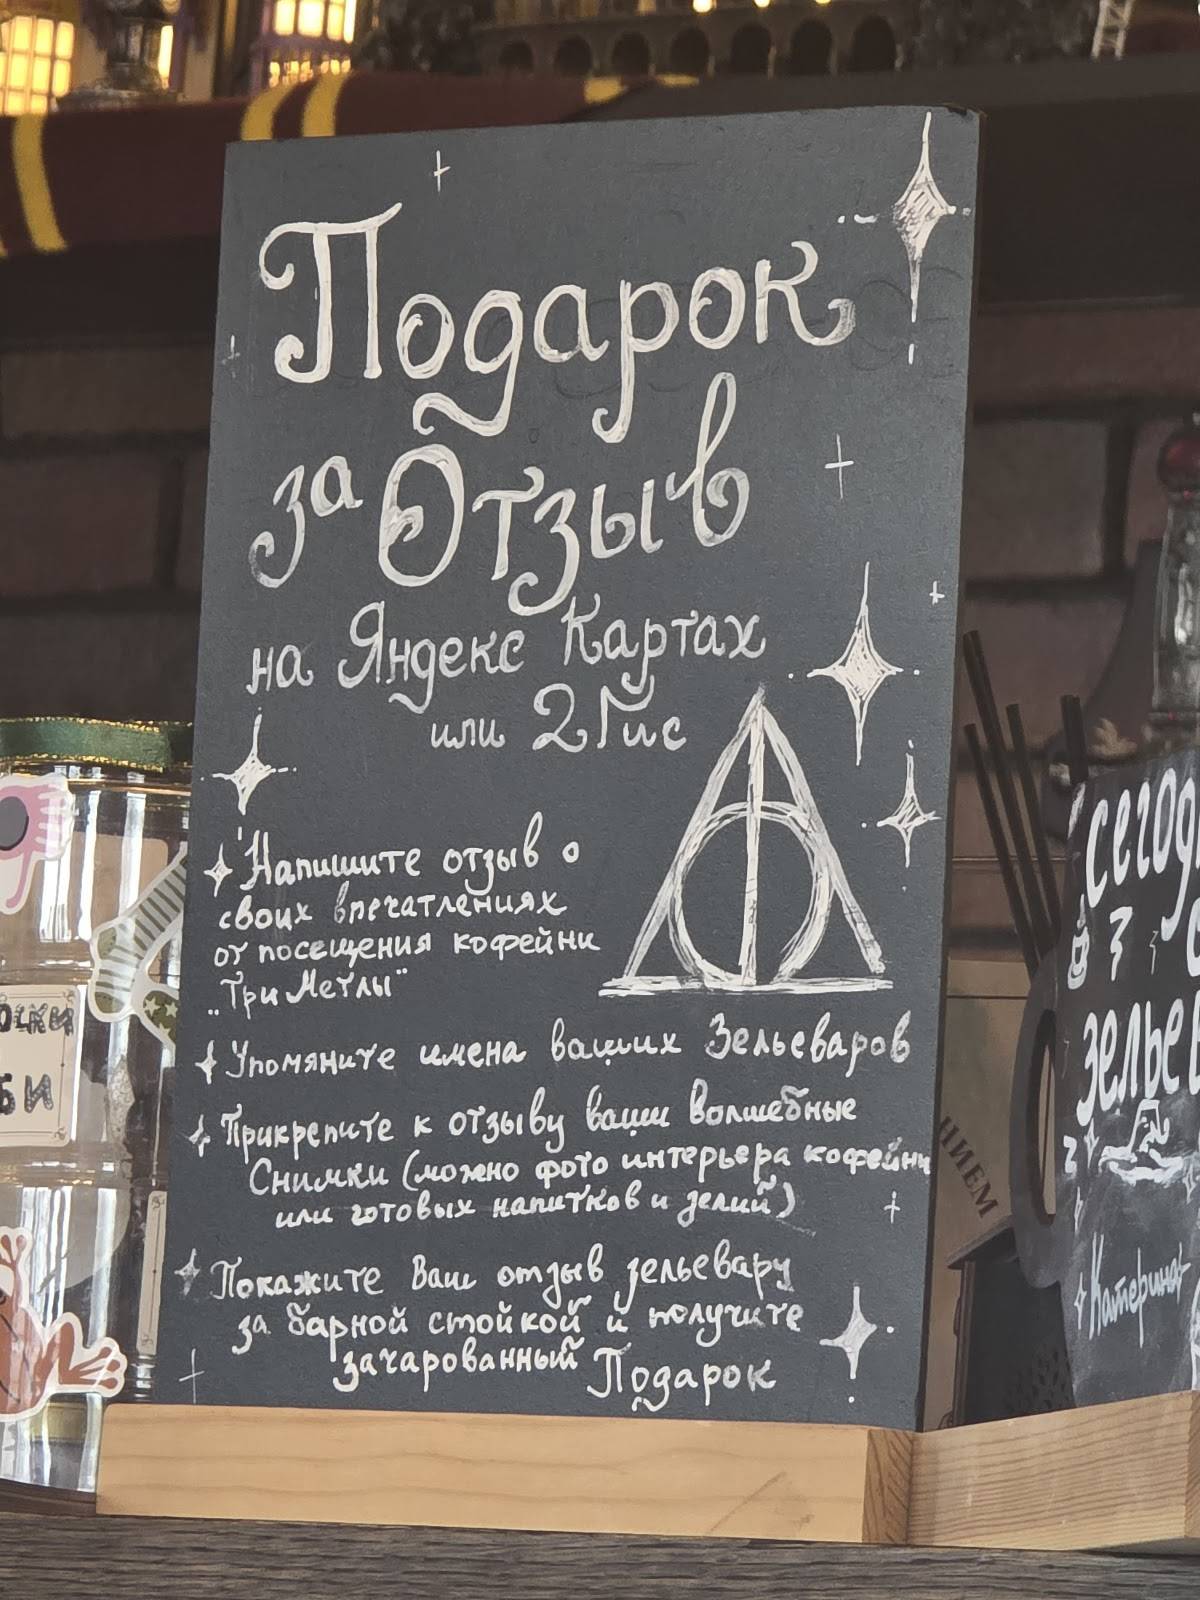 Подарок
за Отзыв
на Яндекс Картах
или 2Гис
Напишите отзыв о
своих впечатлениях
от посещения кофейни
„Три Метлы"
Упомяните имена ваших Зельеваров
Прикрепите к отзыву ваши волшебные
Снимки (можно фото интерьера кофейни
или готовых напитков и зелий)
Покажите Ваш отзыв зельевару
за барной стойкой и получите
зачарованный Подарок
БИ
НИЕМ
Катерина